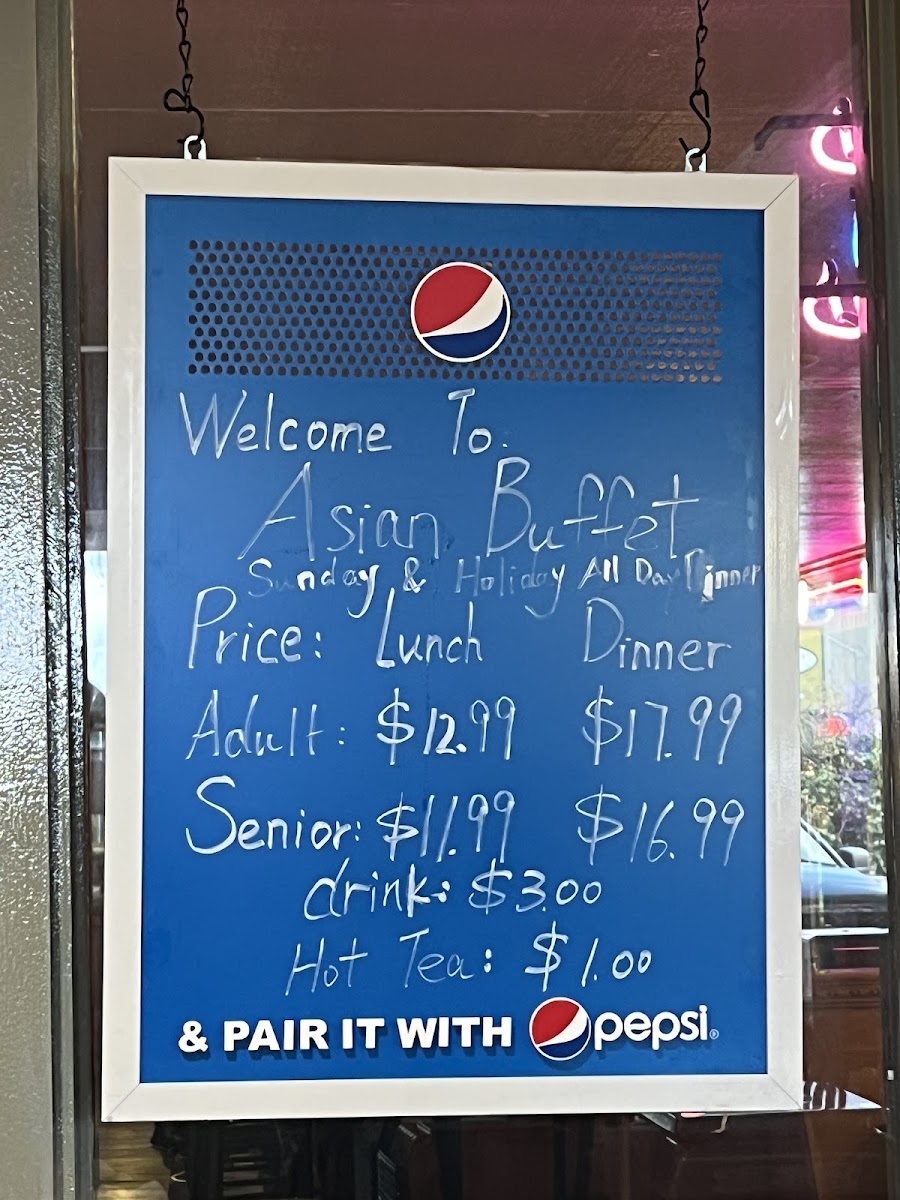 Welcome To.
Asian Buffet
Sunday & Holiday All Day Dinner
Price: Lunch Dinner
Adult: $12.99 $17.99
Senior: $11.99 $16.99
drink: $3.00
Hot Tea: $1.00
& PAIR IT WITH pepsi®